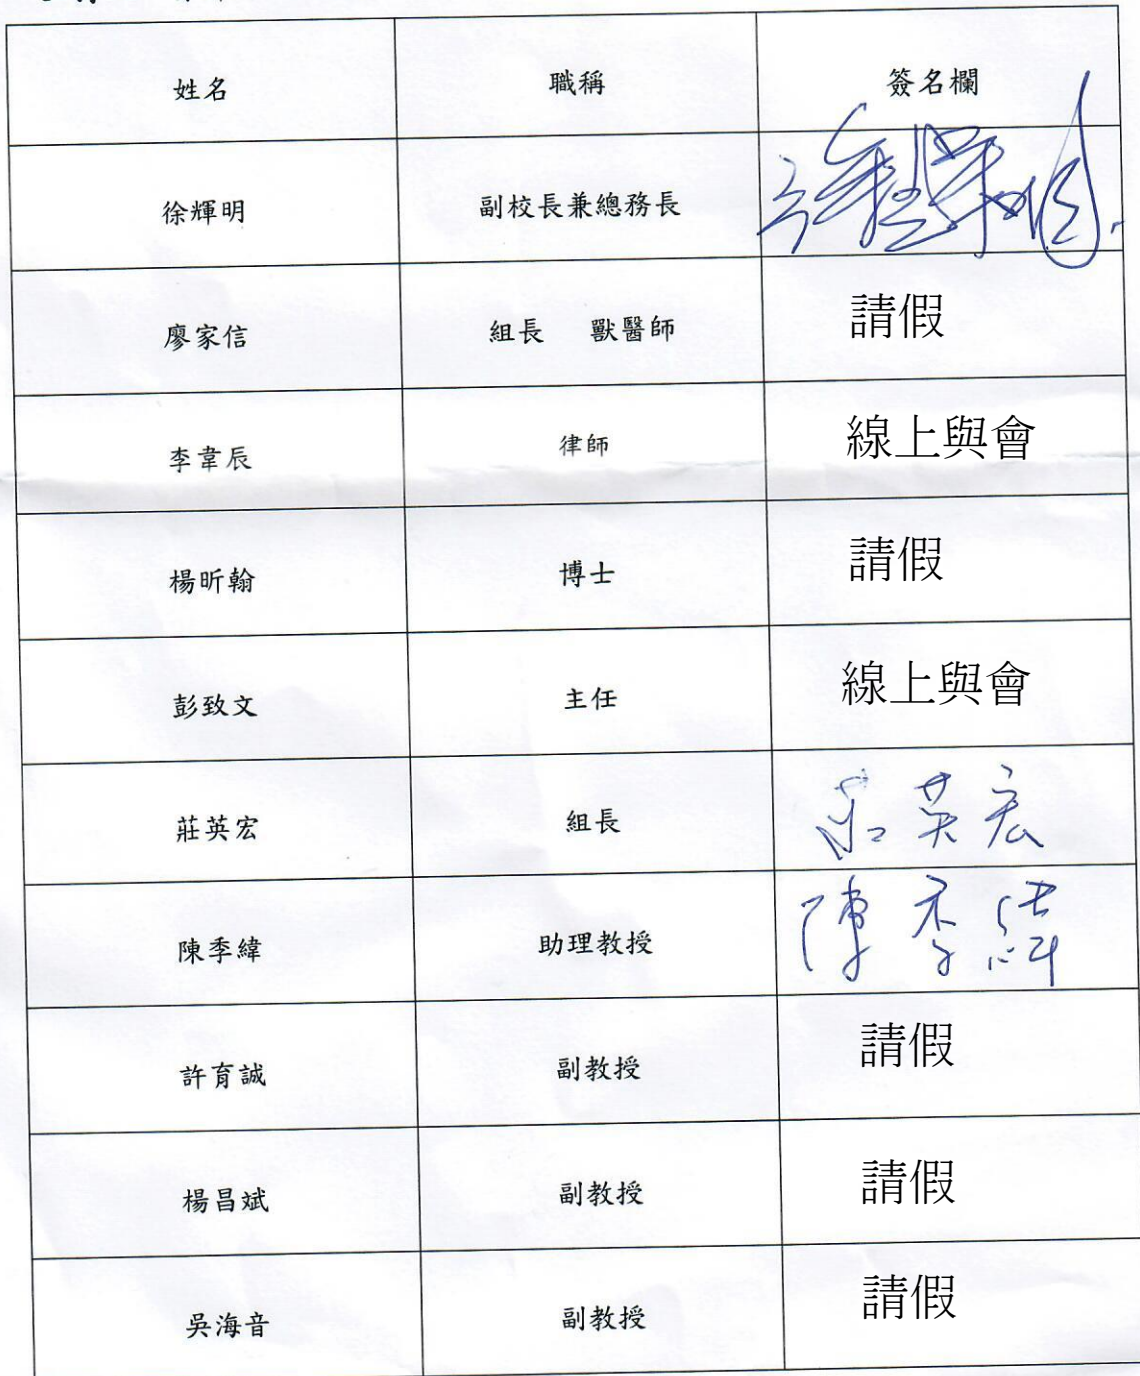 姓名 職稱 簽名欄
徐輝明 副校長兼總務長 徐輝明
廖家信 組長 獸醫師 請假
李韋辰 律師 線上與會
楊昕翰 博士 請假
彭致文 主任 線上與會
莊英宏 組長 莊英宏
陳季緯 助理教授 陳季緯
許育誠 副教授 請假
楊昌斌 副教授 請假
吳海音 副教授 請假